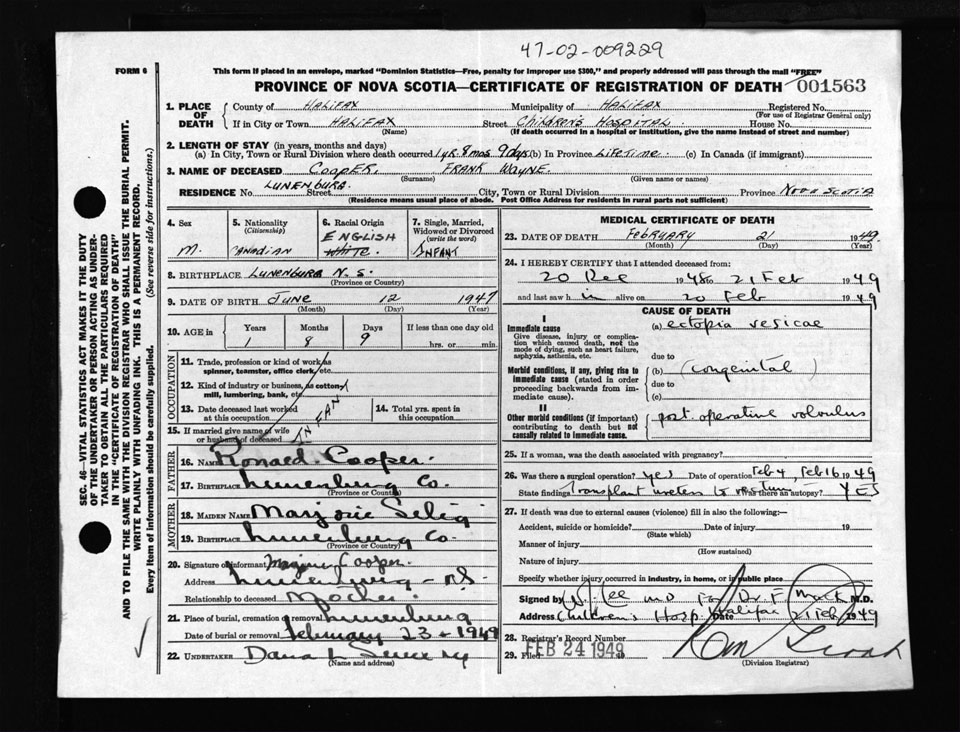 47-02-009229
FORM 6
This form if placed in an envelope, marked "Dominion Statistics—Free, penalty for improper use $300," and properly addressed will pass through the mail "FREE"
PROVINCE OF NOVA SCOTIA—CERTIFICATE OF REGISTRATION OF DEATH 001563
1. PLACE OF DEATH
County of HALIFAX Municipality of HALIFAX Registered No.
(For use of Registrar General only)
If in City or Town HALIFAX Street Children's Hospital House No.
(Name) (If death occurred in a hospital or institution, give the name instead of street and number)
2. LENGTH OF STAY (in years, months and days)
(a) In City, Town or Rural Division where death occurred 1 yr. 8 mos. 9 days (b) In Province Lifetime. (c) In Canada (if immigrant)
3. NAME OF DECEASED Cooper. Frank Wayne.
(Surname) (Given name or names)
RESIDENCE No. Lunenburg. Street City, Town or Rural Division Province Nova Scotia
(Residence means usual place of abode. Post Office Address for residents in rural parts not sufficient)
4. Sex
M.
5. Nationality (Citizenship)
Canadian
6. Racial Origin
ENGLISH
White.
7. Single, Married, Widowed or Divorced (write the word)
Infant
8. BIRTHPLACE Lunenburg N.S.
(Province or Country)
9. DATE OF BIRTH June 12 1947
(Month) (Day) (Year)
10. AGE in Years Months Days If less than one day old
1 8 9 hrs. or min.
OCCUPATION
11. Trade, profession or kind of work as spinner, teamster, office clerk, etc.
12. Kind of industry or business, as cotton mill, lumbering, bank, etc.
13. Date deceased last worked at this occupation
14. Total yrs. spent in this occupation
INFANT
15. If married give name of wife or husband of deceased
FATHER
16. Name Ronald Cooper.
17. Birthplace Lunenburg Co.
(Province or Country)
MOTHER
18. MAIDEN NAME Marjorie Selig
19. BIRTHPLACE Lunenburg Co.
(Province or Country)
20. Signature of informant Cooper.
Address Lunenburg - N.S.
Relationship to deceased Mother.
21. Place of burial, cremation or removal Lunenburg
Date of burial or removal February 23 - 1949
22. UNDERTAKER
(Name and address)
MEDICAL CERTIFICATE OF DEATH
23. DATE OF DEATH February 21 1949.
(Month) (Day) (Year)
24. I HEREBY CERTIFY that I attended deceased from:
20 Dec 1948 to 21 Feb 1949
and last saw him alive on 20 Feb 1949
CAUSE OF DEATH
I
Immediate cause
Give disease, injury or complication which caused death, not the mode of dying, such as heart failure, asphyxia, asthenia, etc.
(a) ectopia vesicae
due to
Morbid conditions, if any, giving rise to immediate cause (stated in order proceeding backwards from immediate cause).
(b) (congenital)
due to
(c)
II
Other morbid conditions (if important) contributing to death but not causally related to immediate cause.
post operative volvulus
25. If a woman, was the death associated with pregnancy?
26. Was there a surgical operation? yes Date of operation Feb 4, Feb 16 1949
State findings Transplant ureters to rectum Was there an autopsy? YES
27. If death was due to external causes (violence) fill in also the following:—
Accident, suicide or homicide? Date of injury 19
(State which)
Manner of injury
(How sustained)
Nature of injury
Specify whether injury occurred in industry, in home, or in public place
Signed by Lee M.D. For Dr F. Mack M.D.
Address Children's Hosp. Halifax Date 21 Feb 1949
28. Registrar's Record Number
29. Filed FEB 24 1949 19
(Division Registrar)
SEC. 46—VITAL STATISTICS ACT MAKES IT THE DUTY OF THE UNDERTAKER OR PERSON ACTING AS UNDERTAKER TO OBTAIN ALL THE PARTICULARS REQUIRED IN THE "CERTIFICATE OF REGISTRATION OF DEATH" AND TO FILE THE SAME WITH THE DIVISION REGISTRAR WHO SHALL ISSUE THE BURIAL PERMIT.
WRITE PLAINLY WITH UNFADING INK. THIS IS A PERMANENT RECORD.
Every item of information should be carefully supplied. (See reverse side for instructions.)